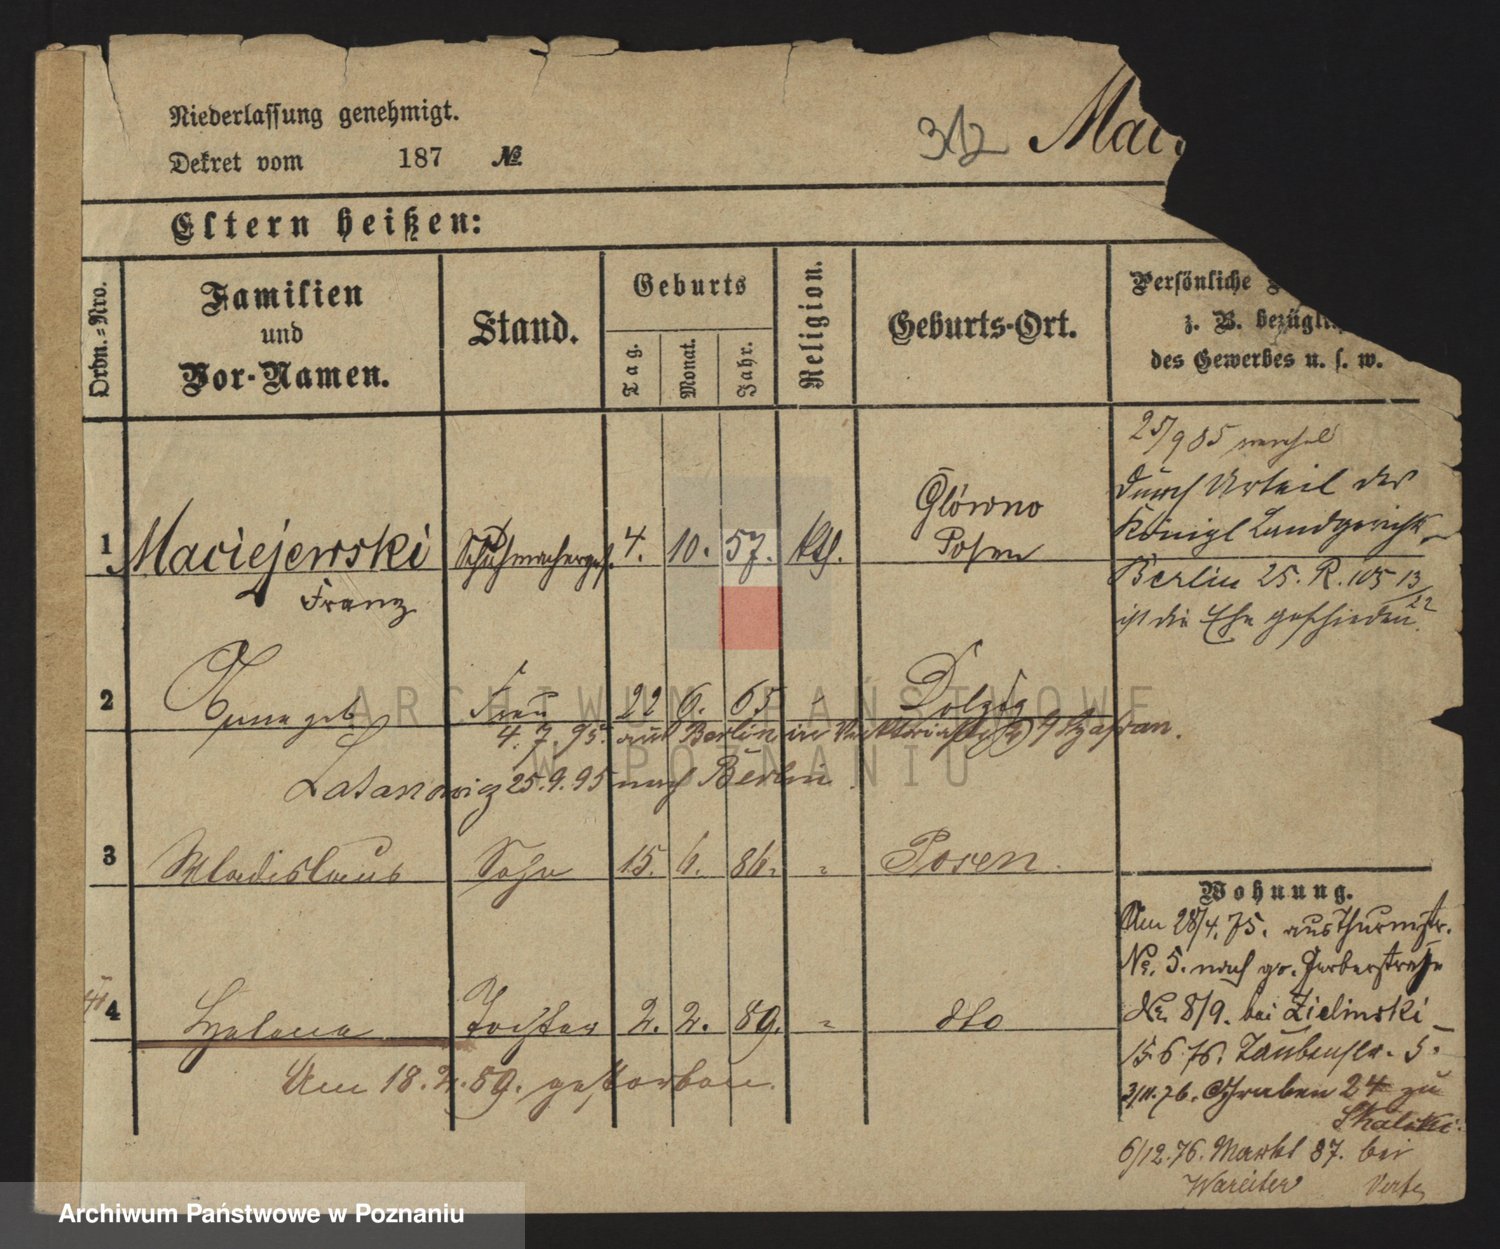 Niederlassung genehmigt.
Dekret vom 187 №
312 Mac
Eltern heißen:
Ordn.-Nro.
Familien
und
Vor-Namen.
Stand.
Geburts
Tag.
Monat.
Jahr.
Religion.
Geburts-Ort.
Persönliche
z. B. bezügli
des Gewerbes u. s. w.
25/9 85
durch Urteil des
Königl Landgerichts
Berlin 25. R. 105 13/22
ist die Ehe geschieden.
1 Maciejewski Schuhmacherges. 4. 10. 57. kth. Główno
Posen
Franz
2 Anna geb Frau 22 6. 65 " Dolzig
4. 7. 95. aus Berlin in
Latanowicz 25.9.95 nach Berlin
3 Wladislaus Sohn 15. 6. 86. " Posen.
4 Helena Tochter 2. 2. 89. " dto
Am 18. 2. 89. gestorben.
Wohnung.
Am 28/4. 75. aus Thurmstr.
No. 5. nach gr. Gerberstraße
No. 8/9. bei Zielinski
15.6.76. Taubenstr. 5.
3/11.76. Graben 24 zu
Skalski.
6/12.76. Markt 87. bei
ARCHIWUM PAŃSTWOWE
W POZNANIU
Archiwum Państwowe w Poznaniu